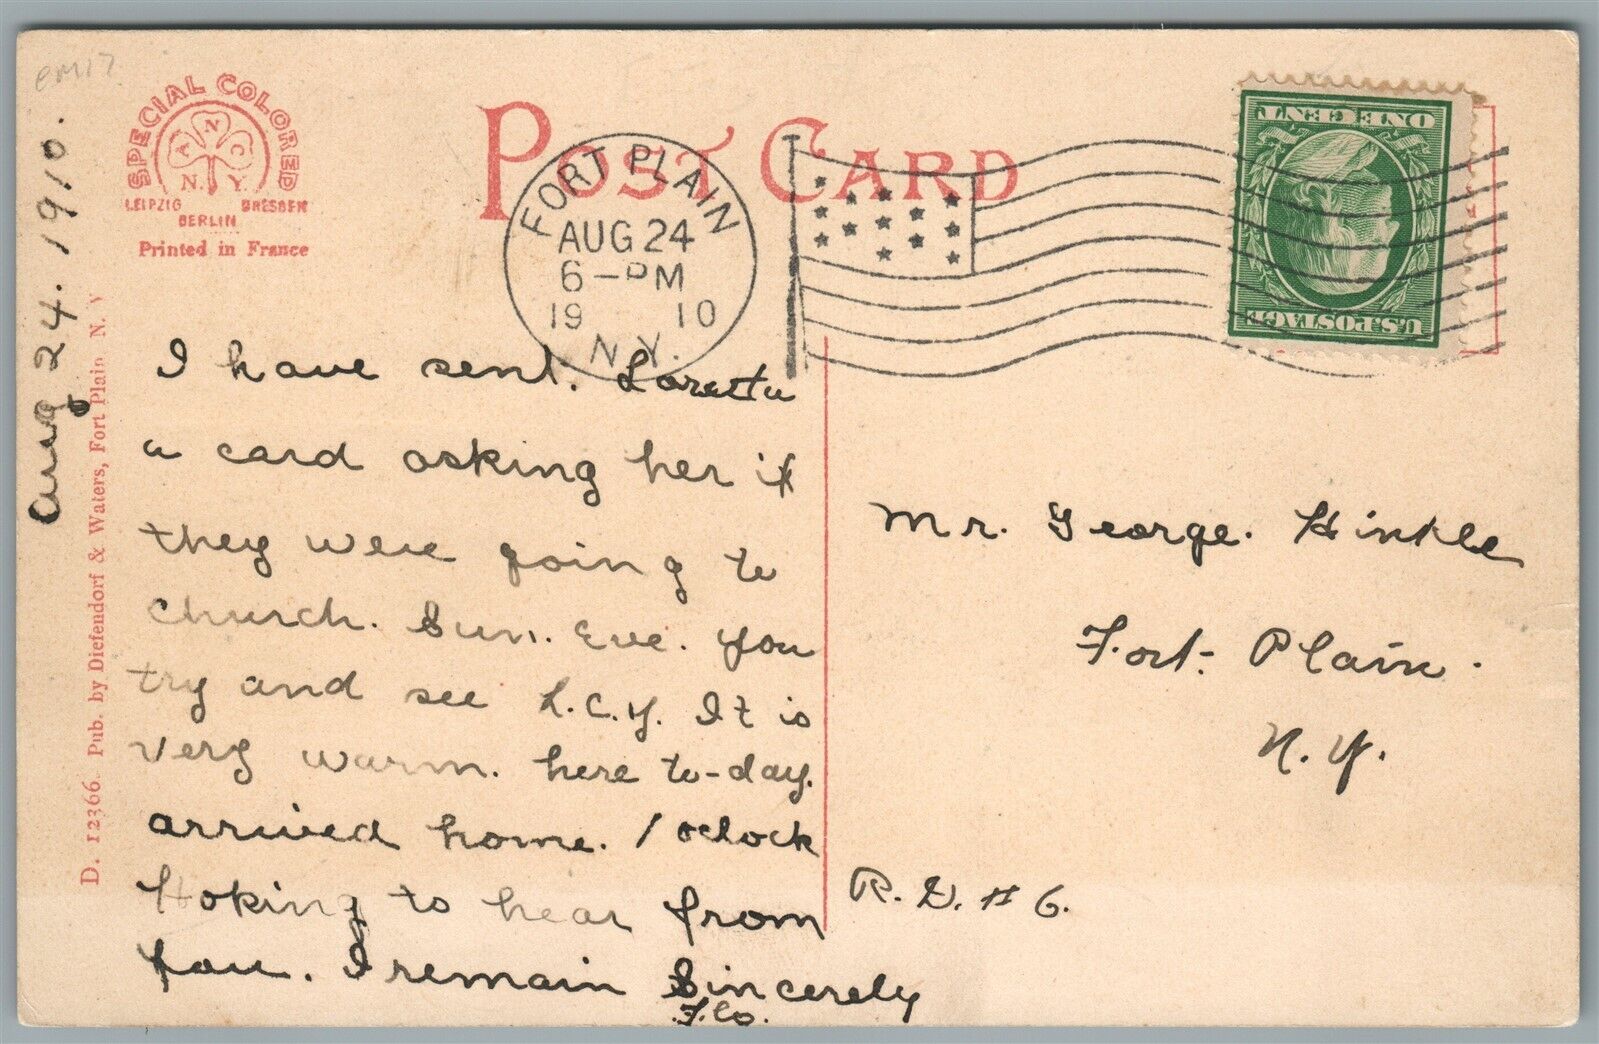 em17
SPECIAL COLORED
A N C
N. Y.
LEIPZIG DRESDEN
BERLIN
Printed in France
POST CARD
FORT PLAIN
AUG 24
6-PM
19 10
N.Y.
ONE CENT
U.S. POSTAGE
Aug 24. 1910.
D. 12366. Pub. by Diefendorf & Waters, Fort Plain N. Y
I have sent. Loretta
a card asking her if
they were going to
church. Sun. Eve. you
try and see L.C.Y. It is
very warm. here to-day.
arrived home. 1 oclock
Hoking to hear from
you. I remain Sincerely
Flo.
Mr. George. Hinkle
Fort. Plain.
N.Y.
R. D. # 6.